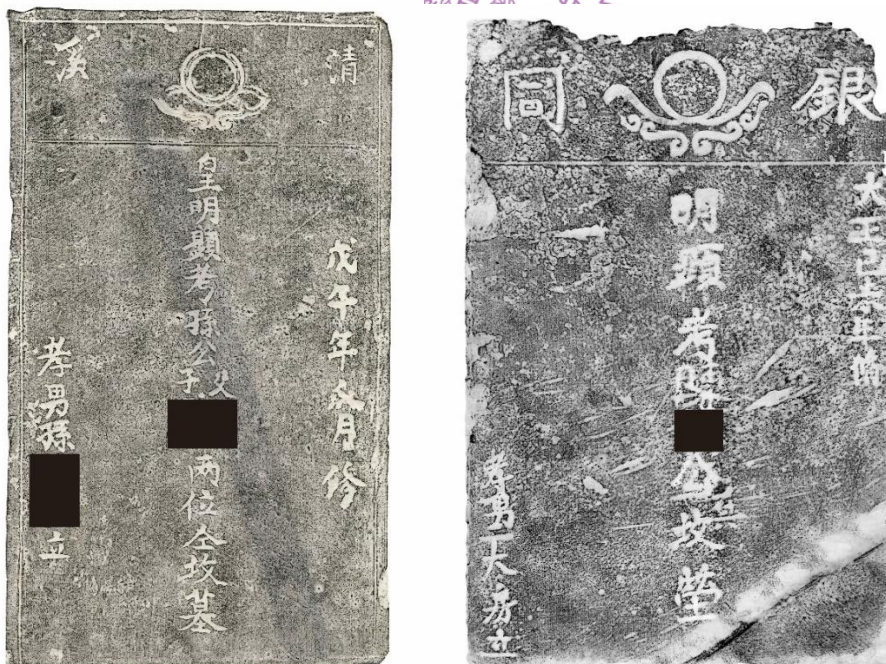 清溪
戊午年冬月修
皇明顯考孫公父子
两位仝坟墓
孝男孫
立
銀同
大正己未年脩
明顯考陳
公坟塋
孝男大房立